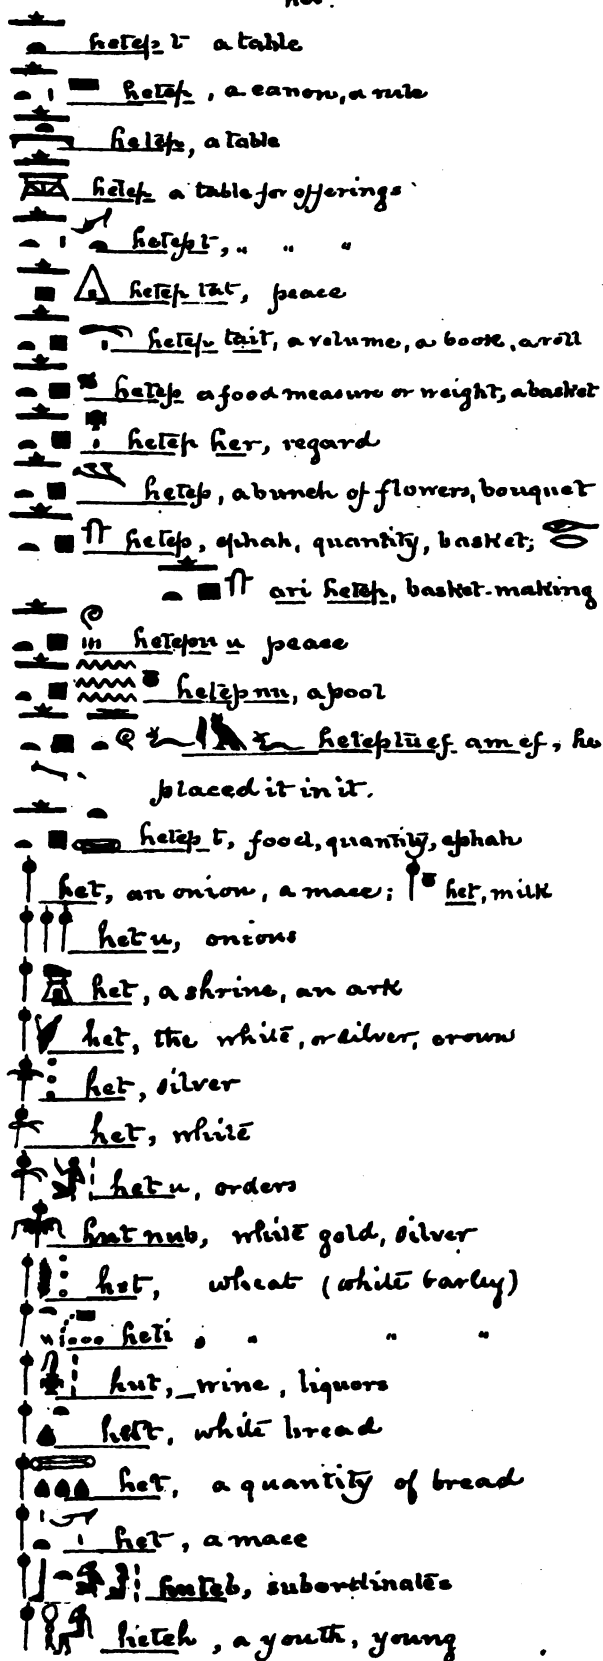 het.
hetep t a table
hetep, a canon, a rule
hetep, a table
hetep a table for offerings
hetept, " " "
hetep tat, peace
hetep tait, a volume, a book, a roll
hetep a food measure or weight, a basket
hetep her, regard
hetep, a bunch of flowers, bouquet
hetep, ephah, quantity, basket;
ari hetep, basket-making
hetepu u peace
hetep nu, a pool
heteptuef am ef, he
placed it in it.
hetep t, food, quantity, ephah
het, an onion, a mace; het, milk
het u, onions
het, a shrine, an ark
het, the white, or silver, crown
het, silver
het, white
het u, orders
hut nub, white gold, silver
het, wheat (white barley)
heti, " " "
hut, wine, liquors
hett, white bread
het, a quantity of bread
het, a mace
huteb, subordinates
heteh, a youth, young